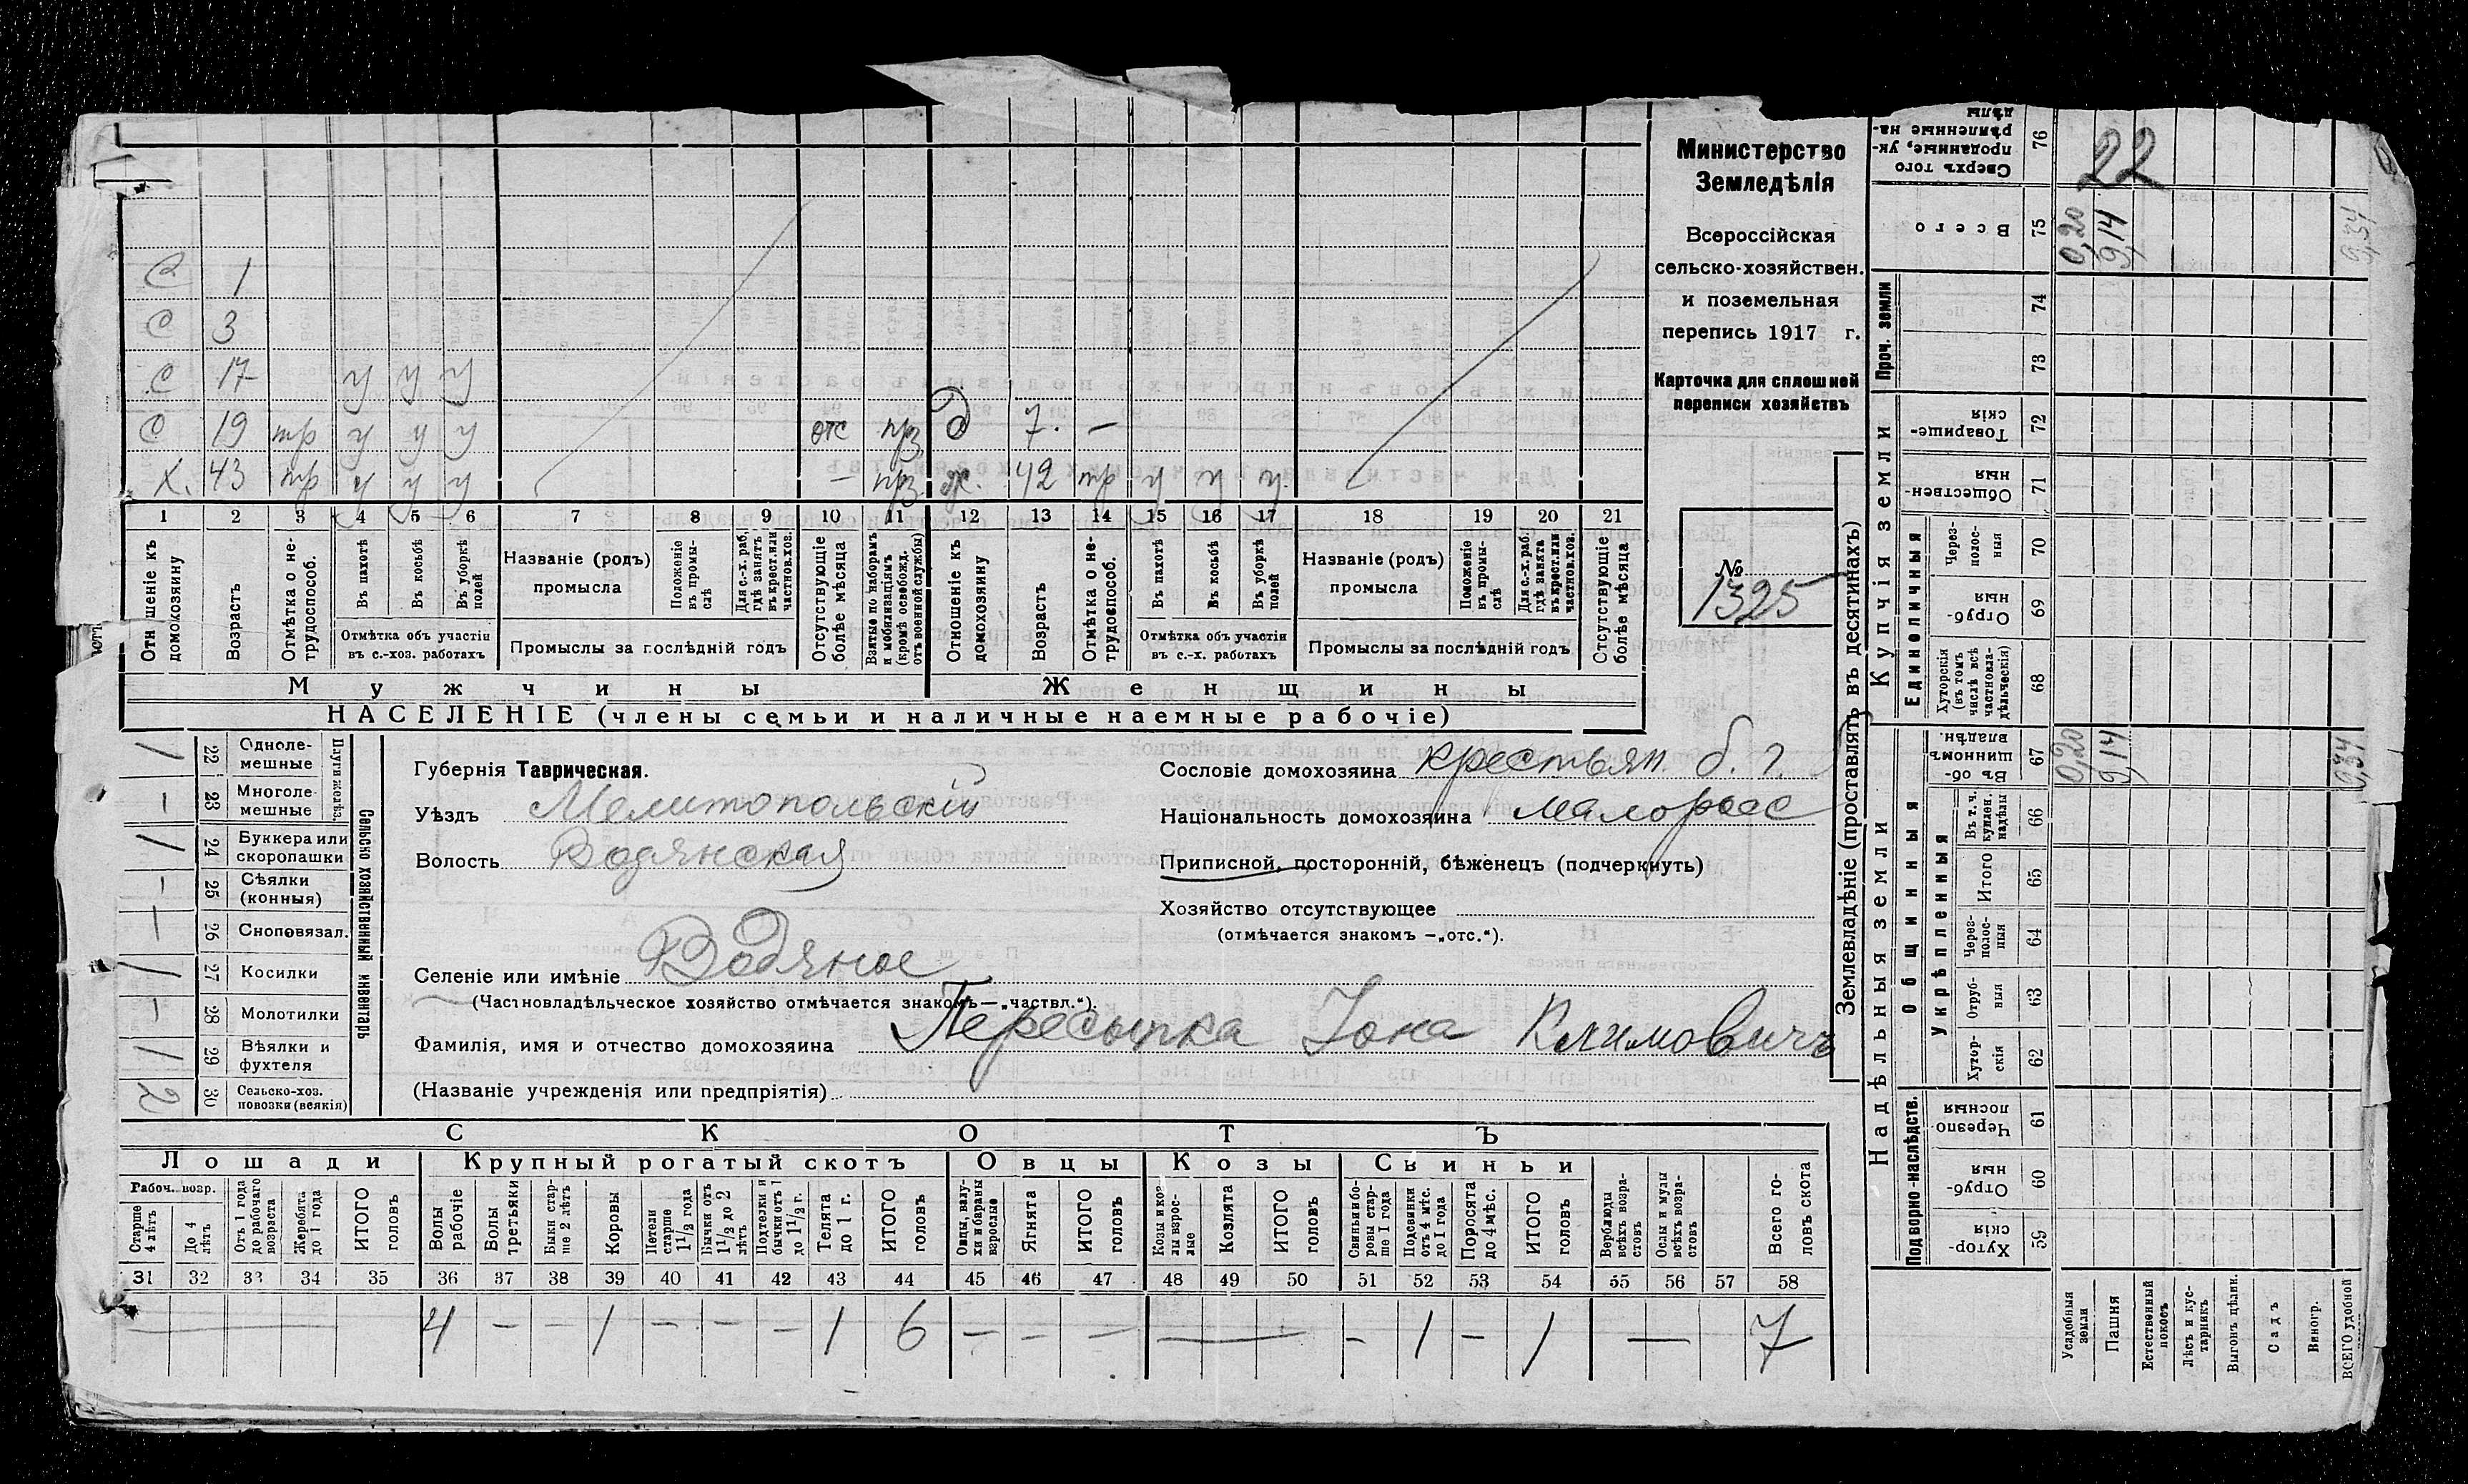 Министерство
Земледѣлія
Всероссійская
сельско-хозяйствен.
и поземельная
перепись 1917 г.
Карточка для сплошной
переписи хозяйствъ
№
1325
С 1
С 3
С 17 у у у
С 19 тр у у у отс прз д 7. —
Х. 43 тр у у у — прз ж. 42 тр у у у
1 2 3 4 5 6 7 8 9 10 11 12 13 14 15 16 17 18 19 20 21
Отношеніе къ домохозяину
Возрастъ
Отмѣтка о нетрудоспособ.
Въ пахотѣ
Въ косьбѣ
Въ уборкѣ полей
Отмѣтка объ участіи
въ с.-хоз. работахъ
Названіе (родъ)
промысла
Положеніе въ промыслѣ
Для с.-х. раб. гдѣ занятъ въ крест. или частнов. хоз.
Промыслы за послѣдній годъ
Отсутствующіе болѣе мѣсяца
Взятые по наборамъ и мобилизаціямъ (кромѣ освобожд. отъ военной службы)
Отношеніе къ домохозяину
Возрастъ
Отмѣтка о нетрудоспособ.
Въ пахотѣ
Въ косьбѣ
Въ уборкѣ полей
Отмѣтка объ участіи
въ с.-х. работахъ
Названіе (родъ)
промысла
Положеніе въ промыслѣ
Для с.-х. раб. гдѣ занята въ крест. или частнов. хоз.
Промыслы за послѣдній годъ
Отсутствующіе болѣе мѣсяца
Мужчины Женщины
НАСЕЛЕНІЕ (члены семьи и наличные наемные рабочіе)
Сельско хозяйственный инвентарь
Плуги желѣз.
/ 22 Однолемешные
— 23 Многолемешные
/ 24 Буккера или скоропашки
— 25 Сѣялки (конныя)
— 26 Сноповязал.
/ 27 Косилки
— 28 Молотилки
/ 29 Вѣялки и фухтеля
2 30 Сельско-хоз. повозки (всякія)
Губернія Таврическая.
Уѣздъ Мелитопольскій
Волость Водянская
Селеніе или имѣніе Водяное
(Частновладѣльческое хозяйство отмѣчается знакомъ—„частвл.“).
Фамилія, имя и отчество домохозяина Пересыпка Іона Климовичъ
(Названіе учрежденія или предпріятія)
Сословіе домохозяина крестьян. б. г.
Національность домохозяина малоросс
Приписной, посторонній, бѣженецъ (подчеркнуть)
Хозяйство отсутствующее
(отмѣчается знакомъ —„отс.“).
СКОТЪ
Лошади Крупный рогатый скотъ Овцы Козы Свиньи
Рабоч. возр.
Старше 4 лѣтъ
До 4 лѣтъ
Отъ 1 года до рабочаго возраста
Жеребята до 1 года
ИТОГО головъ
Волы рабочіе
Волы третьяки
Быки старше 2 лѣтъ
Коровы
Нетели старше 1½ года
Бычки отъ 1½ до 2 лѣтъ
Подтелки и бычки отъ 1 до 1½ г.
Телята до 1 г.
ИТОГО головъ
Овцы, валухи и бараны взрослые
Ягнята
ИТОГО головъ
Козы и козлы взрослые
Козлята
ИТОГО головъ
Свиньи и боровы старше 1 года
Подсвинки отъ 4 мѣс. до 1 года
Поросята до 4 мѣс.
ИТОГО головъ
Верблюды всѣхъ возрастовъ
Ослы и мулы всѣхъ возрастовъ
Всего головъ скота
31 32 33 34 35 36 37 38 39 40 41 42 43 44 45 46 47 48 49 50 51 52 53 54 55 56 57 58
— 4 — — 1 — — — 1 6 — — — — — 1 — 1 — 7
Землевладѣніе (проставлять въ десятинахъ)
Надѣльныя земли Купчія земли
Подворно-наслѣдств.
Общинныя
Укрѣпленныя
Единоличныя
Проч. земли
Сверхъ того проданные, укрѣпленные надѣлы 76 22
Всего 75 0,20 9,14 9,34
74
73
Товарищескія 72
Общественныя 71
Черезполосныя 70
Отрубныя 69
Хуторскія (въ томъ числѣ всѣ частновладѣльческія) 68
Въ общинномъ владѣн. 67 0,20 9,14 9,34
Въ т. ч. куплен. надѣлы 66
Итого 65
Черезполосныя 64
Отрубныя 63
Хуторскія 62
Черезполосныя 61
Отрубныя 60
Хуторскія 59
Усадебныя земли
Пашня
Естественный покосъ
Лѣсъ и кустарникъ
Выгонъ цѣлин.
Садъ
Виногр.
ВСЕГО удобной